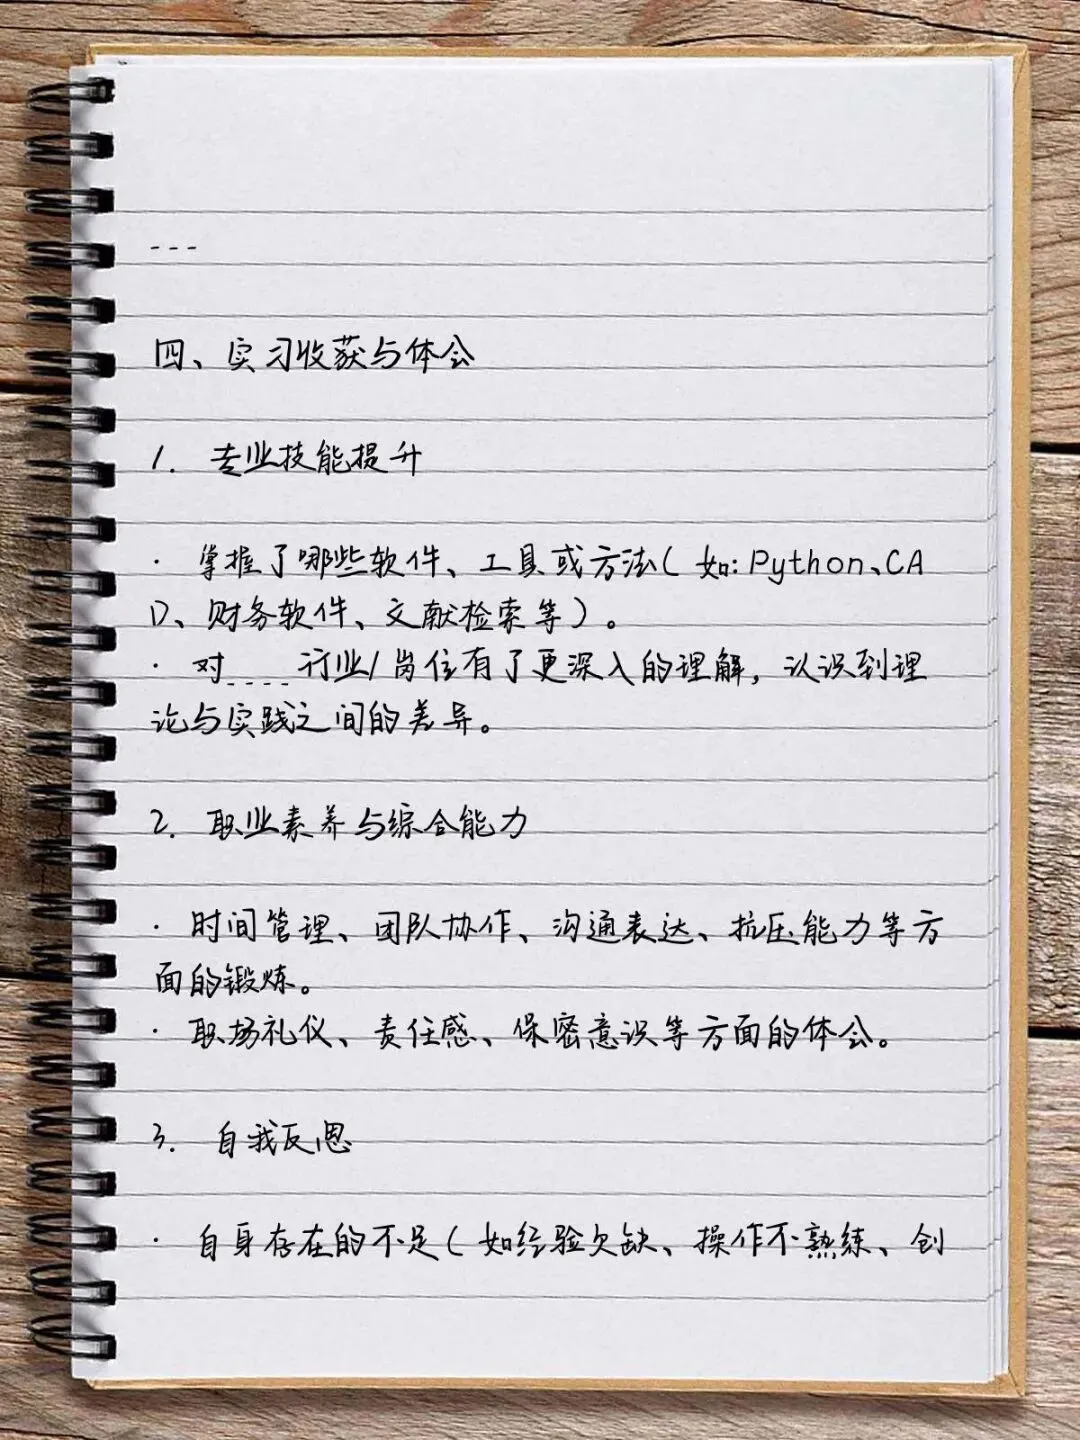 ---
四、实习收获与体会
1. 专业技能提升
· 掌握了哪些软件、工具或方法(如:Python、CA
D、财务软件、文献检索等)。
· 对____行业/岗位有了更深入的理解,认识到理
论与实践之间的差异。
2. 职业素养与综合能力
· 时间管理、团队协作、沟通表达、抗压能力等方
面的锻炼。
· 职场礼仪、责任感、保密意识等方面的体会。
3. 自我反思
· 自身存在的不足(如经验欠缺、操作不熟练、创